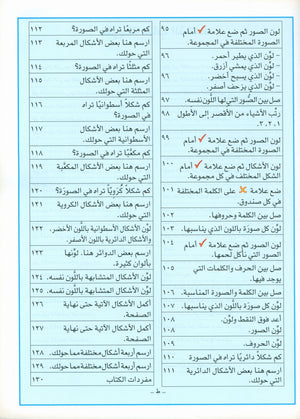 لون الصور ثم ضع علامة ✓ أمام
الصورة المختلفة في المجموعة.
٩٥
- لوِّن الذي يطير أحمر.
- لوِّن الذي يمشي أزرق.
- لوِّن الذي يسبح أخضر.
- لوِّن الذي يزحف أصفر.
٩٦
٩٦
صل بين الصُّور التي لها اللّون نفسه.
٩٧
رتِّب الأشياء من الأقصر إلى الأطول
١، ٢، ٣.
٩٨
لون الصور ثم ضع علامة ✓ أمام
الصورة المختلفة في المجموعة.
٩٩
لون الأشكال ثم ضع علامة ✓ أمام
الشكل المختلف في كل مجموعة.
١٠٠
ضع علامة ✗ على الكلمة المختلفة
في كل صندوق.
١٠١
صل بين الكلمة وحروفها.
١٠٢
لوِّن كل صورة باللون الذي يناسبها.
١٠٣
لون الصور ثم ضع علامة ✓ أمام
الصور التي تؤكل لحمها.
١٠٤
صل بين الحرف والكلمات التي
يوجد فيها.
١٠٥
صل بين الكلمة والصورة المناسبة.
١٠٦
لوِّن كل صورة باللّون الذي يناسبها.
١٠٧
أعد فوق النقط ولوِّن.
١٠٨
لوِّن الصور.
١٠٨
لوِّن الحروف.
١٠٩
كم شكلاً دائريًا تراه في الصورة
١١٠
ارسم هنا بعض الأشكال الدائرية
التي حولك.
١١١
كم مربعًا تراه في الصورة؟
١١٢
ارسم هنا بعض الأشكال المربعة
التي حولك.
١١٣
كم مثلثًا تراه في الصورة؟
١١٤
ارسم هنا بعض الأشكال
المثلثة التي حولك.
١١٥
كم شكلاً أسطوانيًا تراه
في الصورة؟
١١٦
ارسم هنا بعض الأشكال
الأسطوانية التي حولك.
١١٧
كم مكعّبًا تراه في الصورة؟
١١٨
ارسم هنا بعض الأشكال المكعّبة
التي حولك.
١١٩
كم شكلاً كُرَويًا تراه في الصورة؟
١٢٠
ارسم هنا بعض الأشكال الكروية
التي حولك.
١٢١
لوِّن الأشكال الأسطوانية باللّون الأخضر.
والأشكال الدائرية باللون الأصفر.
١٢٢
ارسم بعض الدوائر هنا. لوِّنها
بألوان كثيرة.
١٢٣
لوِّن الأشكال المتشابهة باللّون نفسه.
١٢٤
لوِّن الأشكال المتشابهة باللّون نفسه.
١٢٥
أكمل الأشكال الآتية حتى نهاية
الصفحة.
١٢٦
أكمل الأشكال الآتية حتى نهاية
الصفحة.
١٢٧
ارسم أربعة أشكال مختلفة مما حولك.
١٢٨
ارسم أربعة أشكال مختلفة مما حولك.
١٢٩
مفردات الكتاب
١٣٠
- ط -